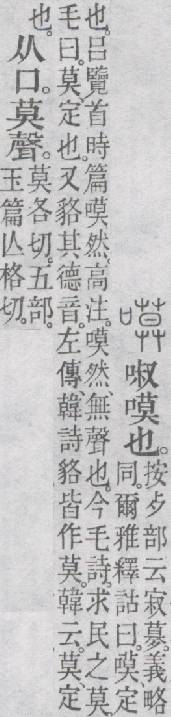 𠴫嗼也。
按夕部云。寂𡖶。義略
同。爾雅釋詁曰。嗼、定
也。呂覽首時篇。嗼然。高注。嗼然、無聲也。今毛詩。求民之莫。
毛曰。莫、定也。又貉其德音。左傳韓詩貉皆作莫。韓云。莫、定
也。
从口。莫聲。
莫各切。五部。
玉篇亾格切。